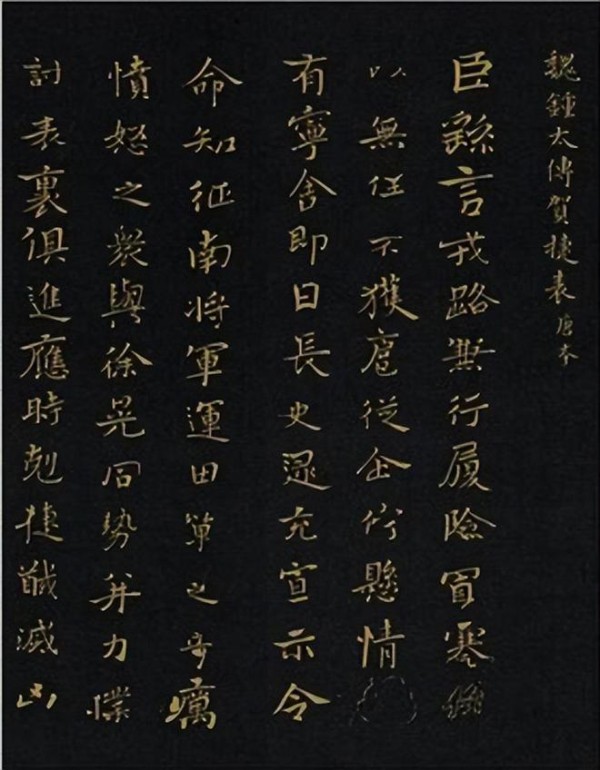 魏鍾太傅賀捷表 唐本
臣繇言戎路兼行履險冒寒
以無任不獲扈從企佇懸情
有寧舍即日長史逯充宣示令
命知征南將軍運田單之奇厲
憤怒之衆與徐晃同勢并力撲
討表裏俱進應時剋捷馘滅凶